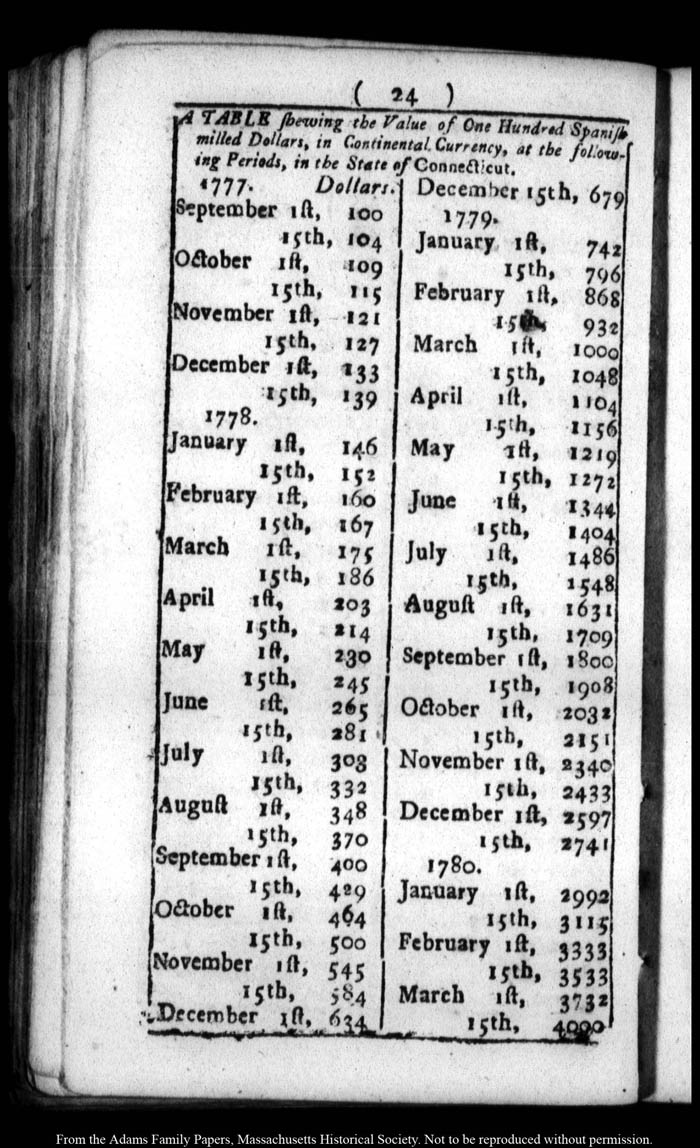 ( 24 )
A TABLE ſhewing the Value of One Hundred Spaniſh
milled Dollars, in Continental Currency, at the follow-
ing Periods, in the State of Connecticut.
1777. Dollars.
September 1ſt, 100
15th, 104
October 1ſt, 109
15th, 115
November 1ſt, 121
15th, 127
December 1ſt, 133
15th, 139
1778.
January 1ſt, 146
15th, 152
February 1ſt, 160
15th, 167
March 1ſt, 175
15th, 186
April 1ſt, 203
15th, 214
May 1ſt, 230
15th, 245
June 1ſt, 265
15th, 281
July 1ſt, 303
15th, 332
Auguſt 1ſt, 348
15th, 370
September 1ſt, 400
15th, 429
October 1ſt, 464
15th, 500
November 1ſt, 545
15th, 584
December 1ſt, 634
December 15th, 679
1779.
January 1ſt, 742
15th, 796
February 1ſt, 868
15th, 932
March 1ſt, 1000
15th, 1048
April 1ſt, 1104
15th, 1156
May 1ſt, 1219
15th, 1272
June 1ſt, 1344
15th, 1404
July 1ſt, 1486
15th, 1548
Auguſt 1ſt, 1631
15th, 1709
September 1ſt, 1800
15th, 1908
October 1ſt, 2032
15th, 2151
November 1ſt, 2340
15th, 2433
December 1ſt, 2597
15th, 2741
1780.
January 1ſt, 2992
15th, 3115
February 1ſt, 3333
15th, 3533
March 1ſt, 3732
15th, 4000
From the Adams Family Papers, Massachusetts Historical Society. Not to be reproduced without permission.